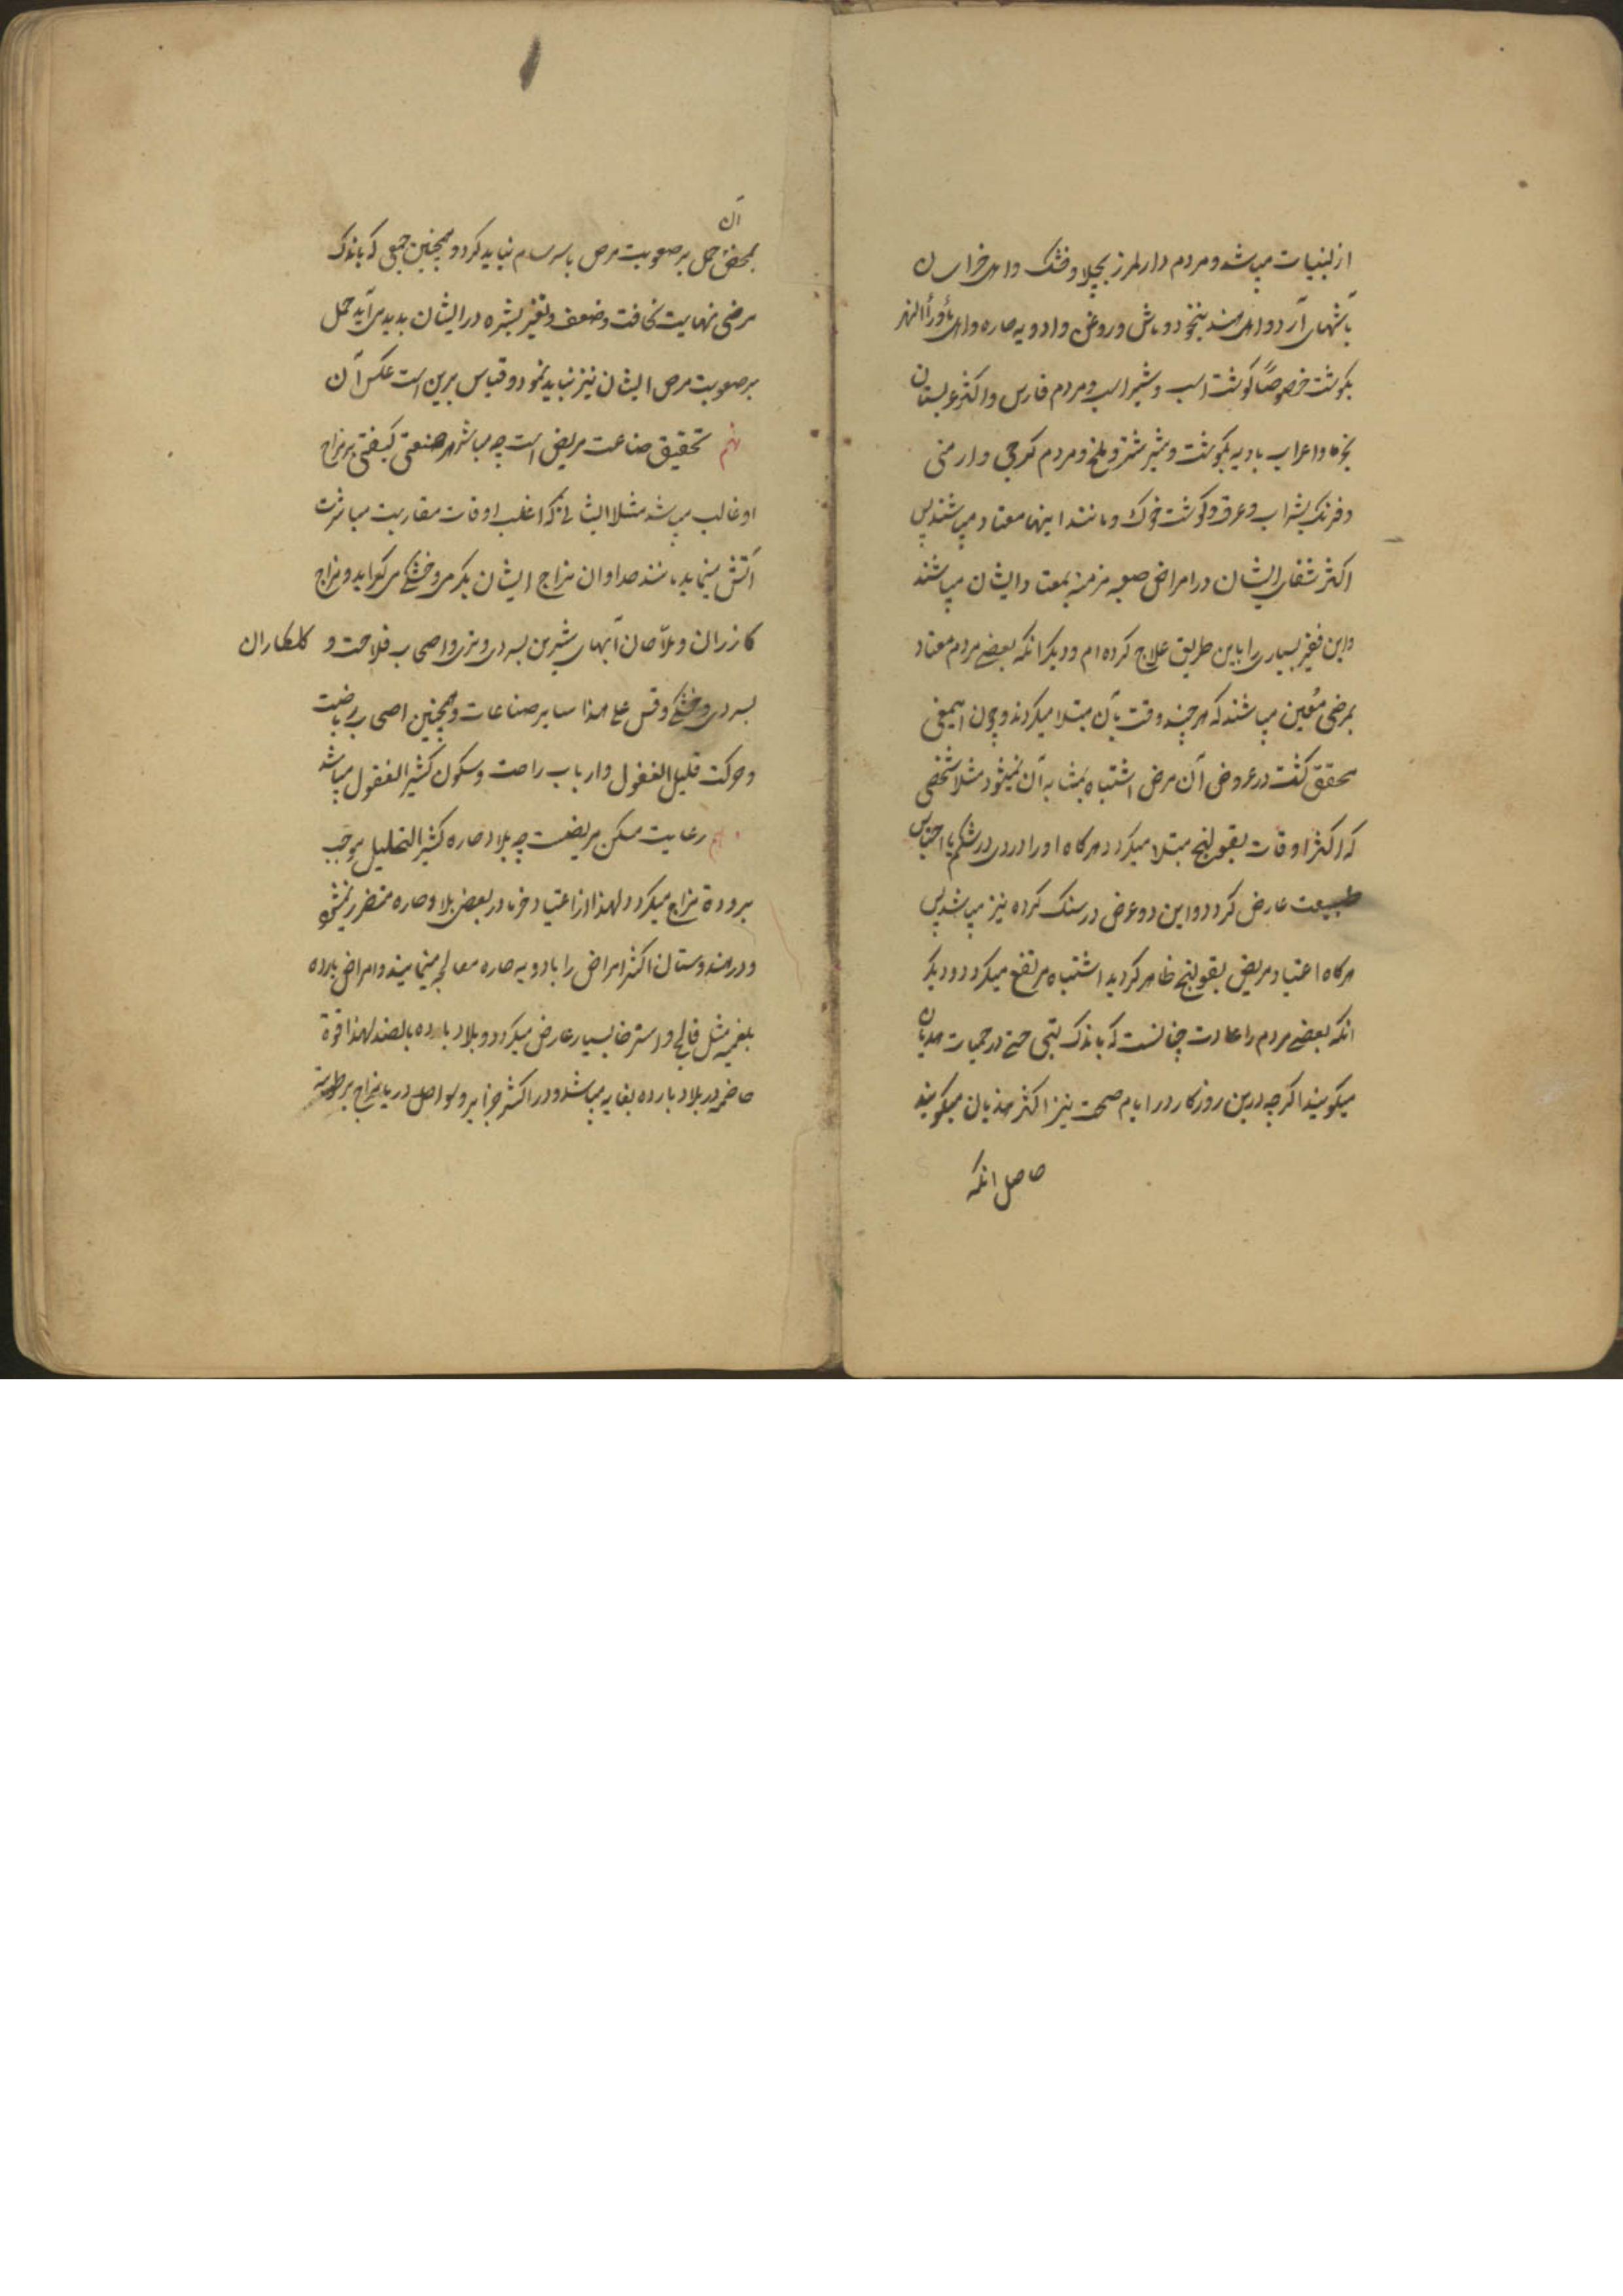 از لبنیات میباشد و مردم دارلمرز بچلاو خشک و اهل خراسان
بآشهای آرد و اهل هند بنخود و ماش و روغن و ادویه حاره و اهل ماوراالنهر
بکوشت خصوصاً کوشت اسب و شیر اسب و مردم فارس و اکثر عربستان
بخرما و اعراب بادیه بکوشت و شیر شتر و ملخ و مردم کرجی و ارمنی
و فرنک بشراب و عرق و کوشت خوک و مانند اینها معتاد میباشند پس
اکثر شفای ایشان در امراض صعبه مزمنه بمعتاد ایشان میباشند
و این فقیر بسیاری را باین طریق علاج کرده ام و دیکر انکه بعضے مردم معتاد
بمرضی معین میباشند که هر چند وقت بآن مبتلا میکردند و چون اینمعنی
محقق کشت در عروض آن مرض اشتباه بمشابه آن نمیشود مثلا شخصی
که اکثر اوقات بقولنج مبتلا میکردد هرکاه او را دردی در شکم با احتباس
طبیعت عارض کردد و این دو عرض در سنک کرده نیز میباشد پس
هرکاه اعتیاد مریض بقولنج ظاهر کردید اشتباه مرتفع میکردد و دیکر
انکه بعضے مردم را عادت چنانست که باندک تبی حتی در حمیات هذیان
میکویند اکرچه درین روزکار در ایام صحت نیز اکثر هذیان میکویند
حاصل انکه
آن
بمحض حمل بر صعوبت مرض یا سرسام نباید کرد و همچنین جمعی که باندک
مرضی نهایت نحافت و ضعف و تغیر بشره در ایشان پدید می آید حمل
بر صعوبت مرض ایشان نیز نباید نمود و قیاس برین است عکس آن
نهم تحقیق صناعت مریض است چه مباشر هر صنعتی کیفیتی بر مزاج
او غالب میباشد مثلا ایشانے که اغلب اوقات مقاربت مباشرت
آتش مینماید مانند حدادان مزاج ایشان بکرمی و خشکی میکراید و مزاج
کازران و ملاحان آبهای شیرین بسردی و تری و اصحاب فلاحت و کلکاران
بسردی و خشکی و قس علے هذا سایر صناعات و همچنین اصحاب ریاضت
و حرکت قلیل الفضول و ارباب راحت و سکون کثیر الفضول میباشد
دهم رعایت مسکن مریضست چه بلاد حاره کثیر التحلیل موجب
برودة مزاج میکردد لهذا از اعتیاد خرما در بعض بلاد حاره متضرر نمیشوند
و در هندوستان اکثر امراض را بادویه حاره معالجه مینمایند و امراض بارده
بلغمیه مثل فالج و استرخا بسیار عارض میکردد و بلاد بارده بالضد لهذا قوة
هاضمه در بلاد بارده بغایه میباشد و در اکثر جزایر و سواحل دریا مزاج برطوبت